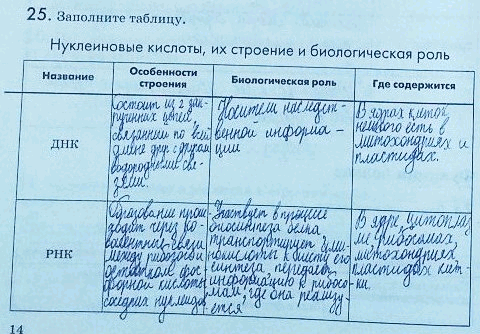 25. Заполните таблицу.
Нуклеиновые кислоты, их строение и биологическая роль
Название
Особенности строения
Биологическая роль
Где содержится
ДНК
Состоит из 2 зак-
рученных цепей,
связанных по всей
длине друг с другом
водородными свя-
зями.
Носители наследст-
венной информа-
ции
В ядрах клеток,
немного есть в
митохондриях и
пластидах.
РНК
Образование проис-
ходит через ко-
валентные связи
между рибозой и
остатком фос-
форной кислоты
соседних нуклеидов
Участвует в процессе
биосинтеза белка
транспортирует амино-
кислоты к месту его
синтеза, передаёт
информацию к рибосо-
мам, где она реализу-
ется
В ядре, цитоплаз-
ме, рибосомах,
митохондриях,
пластидах клет-
ки.
14